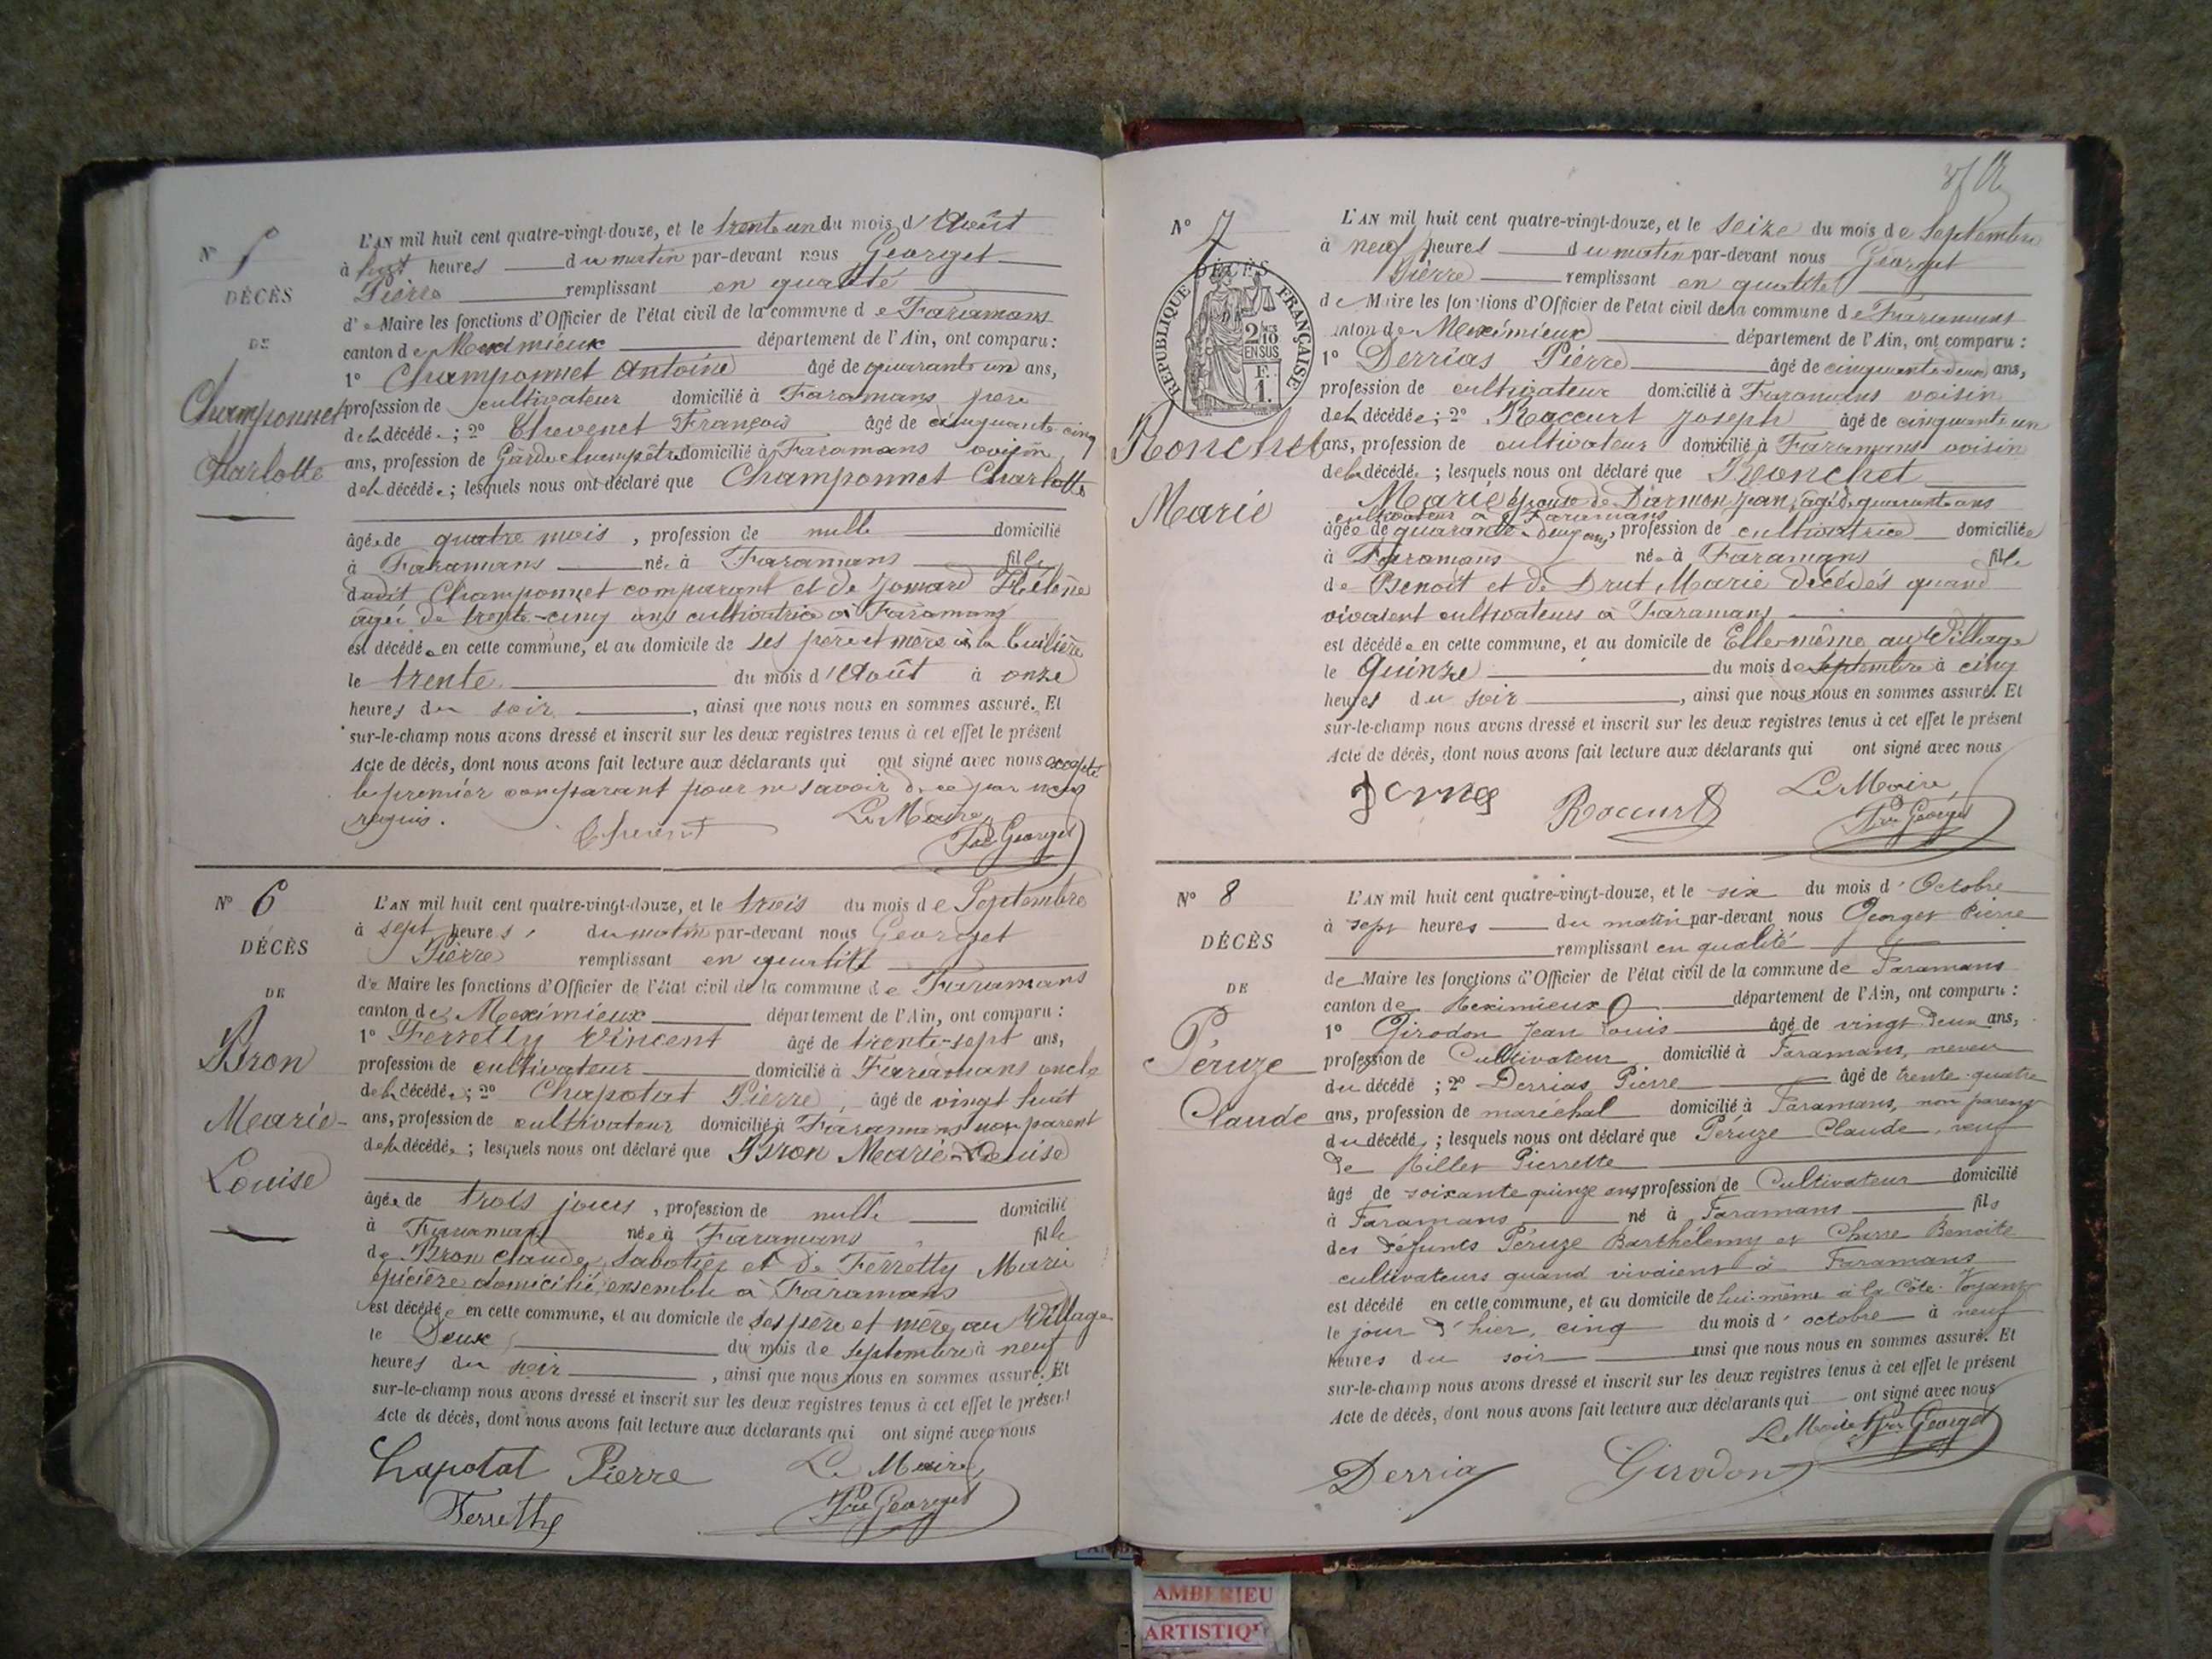 N° 5
DÉCÈS
DE
Champonnet
Charlotte
L'AN mil huit cent quatre-vingt-douze, et le trente un du mois d'Août
à huit heures du matin par-devant nous Georget
Pierre remplissant en qualité
de Maire les fonctions d'Officier de l'état civil de la commune de Faramans
canton de Meximieux département de l'Ain, ont comparu :
1° Champonnet Antoine âgé de quarante un ans,
profession de cultivateur domicilié à Faramans père
de la décédée ; 2° Thevenet François âgé de cinquante cinq
ans, profession de Garde champêtre domicilié à Faramans voisin
de la décédée ; lesquels nous ont déclaré que Champonnet Charlotte
âgée de quatre mois, profession de nulle domicilié
à Faramans née à Faramans fille
dudit Champonnet comparant et de Jomard Hélène
âgée de trente-cinq ans cultivatrice à Faramans
est décédée en cette commune, et au domicile de ses père et mère à la
le trente du mois d'Août à onze
heures du soir, ainsi que nous nous en sommes assuré. Et
sur-le-champ nous avons dressé et inscrit sur les deux registres tenus à cet effet le présent
Acte de décès, dont nous avons fait lecture aux déclarants qui ont signé avec nous excepté
le premier comparant pour ne savoir de ce par nous
requis.
Le Maire,
Pre Georget
N° 6
DÉCÈS
DE
Bron
Marie-
Louise
L'AN mil huit cent quatre-vingt-douze, et le trois du mois de Septembre
à sept heures du matin par-devant nous Georget
Pierre remplissant en qualité
de Maire les fonctions d'Officier de l'état civil de la commune de Faramans
canton de Meximieux département de l'Ain, ont comparu :
1° Ferretty Vincent âgé de trente-sept ans,
profession de cultivateur domicilié à Faramans oncle
de la décédée ; 2° Chapotat Pierre, âgé de vingt huit
ans, profession de cultivateur domicilié à Faramans non parent
de la décédée ; lesquels nous ont déclaré que Bron Marie-Louise
âgée de trois jours, profession de nulle domicilié
à Faramans née à Faramans fille
de Bron Claude, Sabotier et de Ferretty Marie
épicière domicilié ensemble à Faramans
est décédée en cette commune, et au domicile de ses père et mère, au Village
le Deux du mois de septembre à neuf
heures du soir, ainsi que nous nous en sommes assuré. Et
sur-le-champ nous avons dressé et inscrit sur les deux registres tenus à cet effet le présent
Acte de décès, dont nous avons fait lecture aux déclarants qui ont signé avec nous
Chapotat Pierre Le Maire,
Ferretty Pre Georget
N° 7
DÉCÈS
DE
RÉPUBLIQUE FRANÇAISE
2/10 EN SUS
F. 1.
Ronchet
Marie
L'AN mil huit cent quatre-vingt-douze, et le seize du mois de Septembre
à neuf heures du matin par-devant nous Georget
Pierre remplissant en qualité
de Maire les fonctions d'Officier de l'état civil de la commune de Faramans
canton de Meximieux département de l'Ain, ont comparu :
1° Derrias Pierre âgé de cinquante deux ans,
profession de cultivateur domicilié à Faramans voisin
de la décédée ; 2° Raccurt Joseph âgé de cinquante un
ans, profession de cultivateur domicilié à Faramans voisin
de la décédée ; lesquels nous ont déclaré que Ronchet
Marie épouse de Darmon Jean, âgé de quarante ans
cultivateur à Faramans
âgée de quarante-deux ans, profession de cultivatrice domiciliée
à Faramans née à Faramans fille
de Benoît et de Drut Marie décédés quand
vivaient cultivateurs à Faramans
est décédée en cette commune, et au domicile de Elle-même au Village
le Quinze du mois de septembre à cinq
heures du soir, ainsi que nous nous en sommes assuré. Et
sur-le-champ nous avons dressé et inscrit sur les deux registres tenus à cet effet le présent
Acte de décès, dont nous avons fait lecture aux déclarants qui ont signé avec nous
Raccurt Le Maire,
Pre Georget
N° 8
DÉCÈS
DE
Péruze
Claude
L'AN mil huit cent quatre-vingt-douze, et le six du mois d'Octobre
à sept heures du matin par-devant nous Georget Pierre
remplissant en qualité
de Maire les fonctions d'Officier de l'état civil de la commune de Faramans
canton de Meximieux département de l'Ain, ont comparu :
1° Girodon Jean Louis âgé de vingt deux ans,
profession de Cultivateur domicilié à Faramans, neveu
du décédé ; 2° Derrias Pierre âgé de trente-quatre
ans, profession de maréchal domicilié à Faramans, non parent
du décédé ; lesquels nous ont déclaré que Péruze Claude, veuf
de Millet Pierrette
âgé de soixante quinze ans profession de Cultivateur domicilié
à Faramans né à Faramans fils
des défunts Péruze Barthélemy et Benoite
cultivateurs quand vivaient à Faramans
est décédé en cette commune, et au domicile de lui-même à la Côte
le jour d'hier, cinq du mois d'octobre à neuf
heures du soir ainsi que nous nous en sommes assuré. Et
sur-le-champ nous avons dressé et inscrit sur les deux registres tenus à cet effet le présent
Acte de décès, dont nous avons fait lecture aux déclarants qui ont signé avec nous
Le Maire Pre Georget
Derrias Girodon
AMBERIEU
ARTISTIQUE